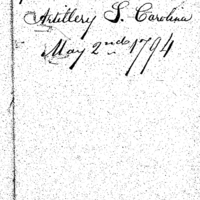 Artillery S. Carolina
May 2nd 1794